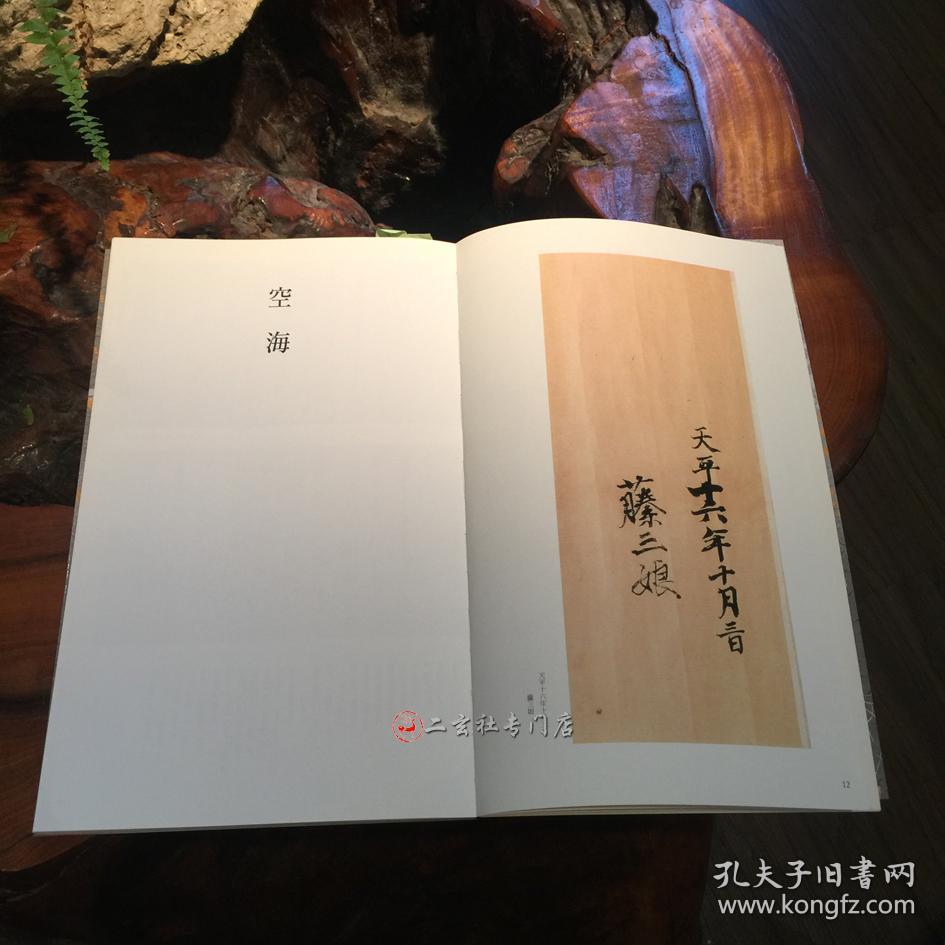 空海
天平十六年十月三日
藤三娘
天平十六年十
藤三娘
12
二玄社专门店
孔夫子旧书网
www.kongfz.com